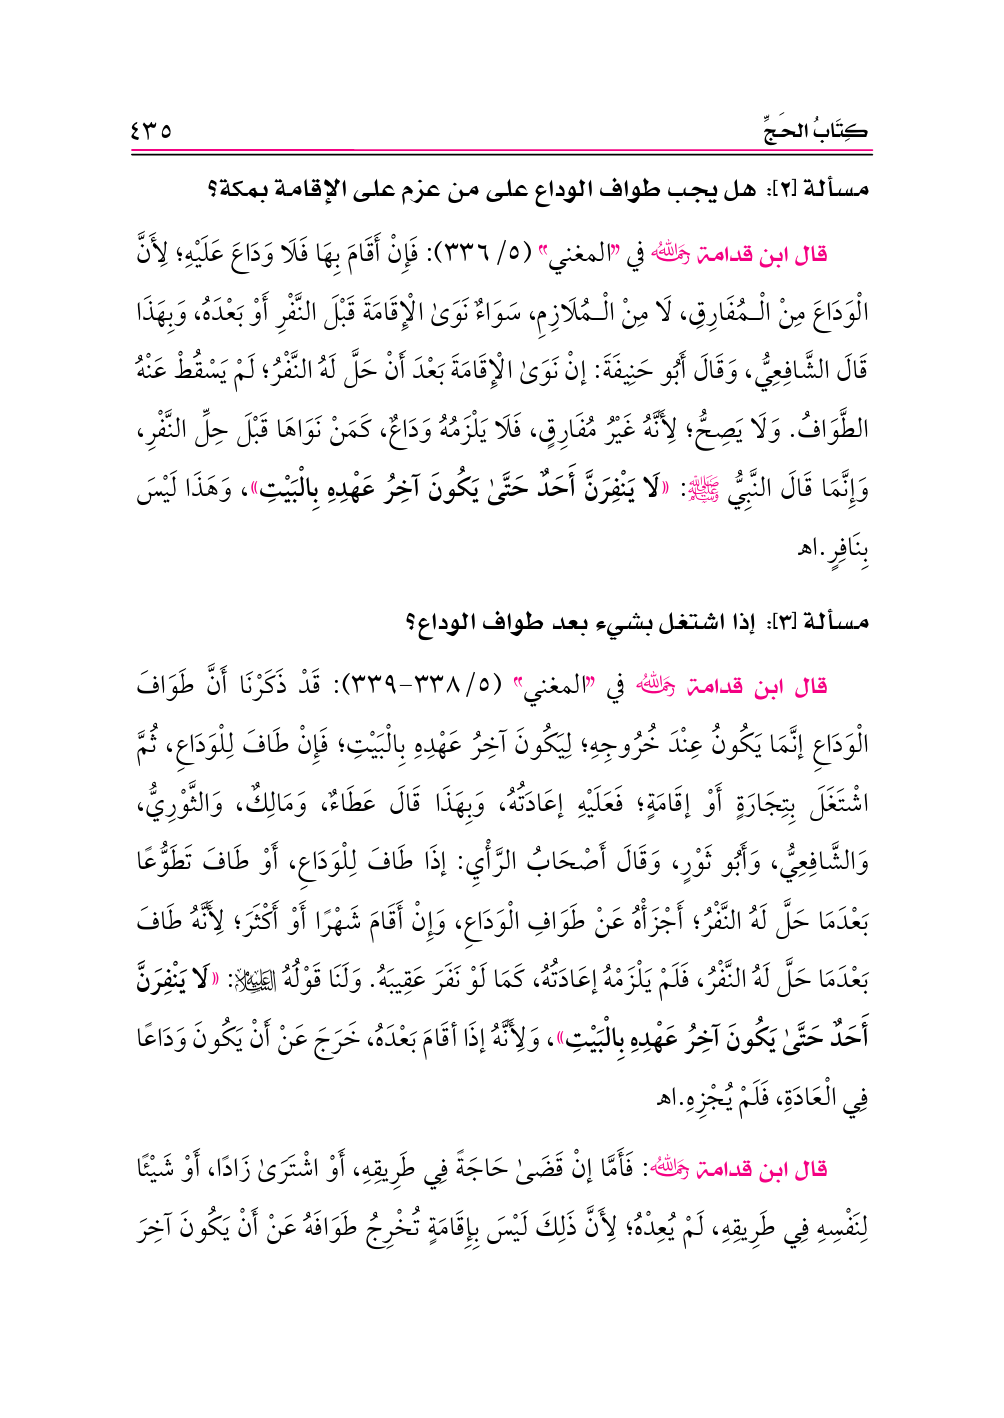 كِتَابُ الحَجِّ ٤٣٥
مسألة [٢]: هل يجب طواف الوداع على من عزم على الإقامة بمكة؟
قال ابن قدامة رَحِمَهُ اللهُ في "المغني" (٥/ ٣٣٦): فَإِنْ أَقَامَ بِهَا فَلَا وَدَاعَ عَلَيْهِ؛ لِأَنَّ
الْوَدَاعَ مِنْ الْـمُفَارِقِ، لَا مِنْ الْـمُلَازِمِ، سَوَاءٌ نَوَىٰ الْإِقَامَةَ قَبْلَ النَّفْرِ أَوْ بَعْدَهُ، وَبِهَذَا
قَالَ الشَّافِعِيُّ، وَقَالَ أَبُو حَنِيفَةَ: إنْ نَوَىٰ الْإِقَامَةَ بَعْدَ أَنْ حَلَّ لَهُ النَّفْرُ؛ لَمْ يَسْقُطْ عَنْهُ
الطَّوَافُ. وَلَا يَصِحُّ؛ لِأَنَّهُ غَيْرُ مُفَارِقٍ، فَلَا يَلْزَمُهُ وَدَاعٌ، كَمَنْ نَوَاهَا قَبْلَ حِلِّ النَّفْرِ،
وَإِنَّمَا قَالَ النَّبِيُّ ﷺ: «لَا يَنْفِرَنَّ أَحَدٌ حَتَّىٰ يَكُونَ آخِرُ عَهْدِهِ بِالْبَيْتِ»، وَهَذَا لَيْسَ
بِنَافِرٍ.اهـ
مسألة [٣]: إذا اشتغل بشيء بعد طواف الوداع؟
قال ابن قدامة رَحِمَهُ اللهُ في "المغني" (٥/ ٣٣٨-٣٣٩): قَدْ ذَكَرْنَا أَنَّ طَوَافَ
الْوَدَاعِ إنَّمَا يَكُونُ عِنْدَ خُرُوجِهِ؛ لِيَكُونَ آخِرُ عَهْدِهِ بِالْبَيْتِ؛ فَإِنْ طَافَ لِلْوَدَاعِ، ثُمَّ
اشْتَغَلَ بِتِجَارَةٍ أَوْ إقَامَةٍ؛ فَعَلَيْهِ إعَادَتُهُ، وَبِهَذَا قَالَ عَطَاءٌ، وَمَالِكٌ، وَالثَّوْرِيُّ،
وَالشَّافِعِيُّ، وَأَبُو ثَوْرٍ، وَقَالَ أَصْحَابُ الرَّأْيِ: إذَا طَافَ لِلْوَدَاعِ، أَوْ طَافَ تَطَوُّعًا
بَعْدَمَا حَلَّ لَهُ النَّفْرُ؛ أَجْزَأَهُ عَنْ طَوَافِ الْوَدَاعِ، وَإِنْ أَقَامَ شَهْرًا أَوْ أَكْثَرَ؛ لِأَنَّهُ طَافَ
بَعْدَمَا حَلَّ لَهُ النَّفْرُ، فَلَمْ يَلْزَمْهُ إعَادَتُهُ، كَمَا لَوْ نَفَرَ عَقِيبَهُ. وَلَنَا قَوْلُهُ عَلَيْهِ السَّلَامُ: «لَا يَنْفِرَنَّ
أَحَدٌ حَتَّىٰ يَكُونَ آخِرُ عَهْدِهِ بِالْبَيْتِ»، وَلِأَنَّهُ إذَا أقَامَ بَعْدَهُ، خَرَجَ عَنْ أَنْ يَكُونَ وَدَاعًا
فِي الْعَادَةِ، فَلَمْ يُجْزِهِ.اهـ
قال ابن قدامة رَحِمَهُ اللهُ: فَأَمَّا إنْ قَضَىٰ حَاجَةً فِي طَرِيقِهِ، أَوْ اشْتَرَىٰ زَادًا، أَوْ شَيْئًا
لِنَفْسِهِ فِي طَرِيقِهِ، لَمْ يُعِدْهُ؛ لِأَنَّ ذَلِكَ لَيْسَ بِإِقَامَةٍ تُخْرِجُ طَوَافَهُ عَنْ أَنْ يَكُونَ آخِرَ